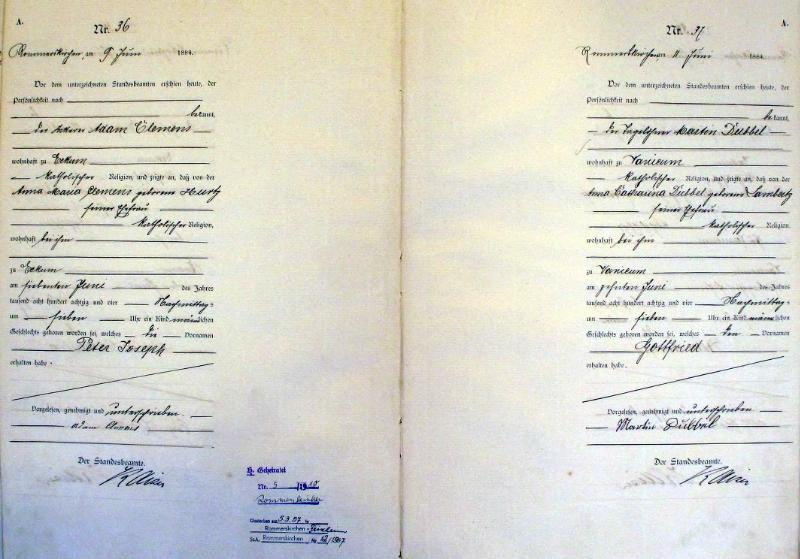 A.
Nr. 36
Rommerskirchen, am 9 Juni 1884.
Vor dem unterzeichneten Standesbeamten erschien heute, der
Persönlichkeit nach
bekannt,
der Ackerer Adam Clemens
wohnhaft zu Eckum
katholischer Religion, und zeigte an, daß von der
Anna Maria Clemens geborene
seiner Ehefrau
katholischer Religion,
wohnhaft bei ihm
zu Eckum
am siebenten Juni des Jahres
tausend acht hundert achtzig und vier Nachmittags
um sieben Uhr ein Kind männlichen
Geschlechts geboren worden sei, welches die Vornamen
Peter Joseph
erhalten habe.
Vorgelesen, genehmigt und unterschrieben
Adam
Der Standesbeamte.
H. Geheiratet
Nr. 5
Rommerskirchen
Gestorben am 5.3.57 in
Rommerskirchen
StA. Rommerskirchen Nr.
A.
Nr. 37
Rommerskirchen 11 Juni 1884.
Vor dem unterzeichneten Standesbeamten erschien heute, der
Persönlichkeit nach
bekannt,
der Tagelöhner Martin Dübbel
wohnhaft zu Vanicum
katholischer Religion, und zeigte an, daß von der
Anna Catharina Dübbel geborene
seiner Ehefrau
katholischer Religion,
wohnhaft bei ihm
zu Vanicum
am zehnten Juni des Jahres
tausend acht hundert achtzig und vier Nachmittags
um sieben Uhr ein Kind männlichen
Geschlechts geboren worden sei, welches den Vornamen
Gottfried
erhalten habe.
Vorgelesen, genehmigt und unterschrieben
Martin Dübbel
Der Standesbeamte.